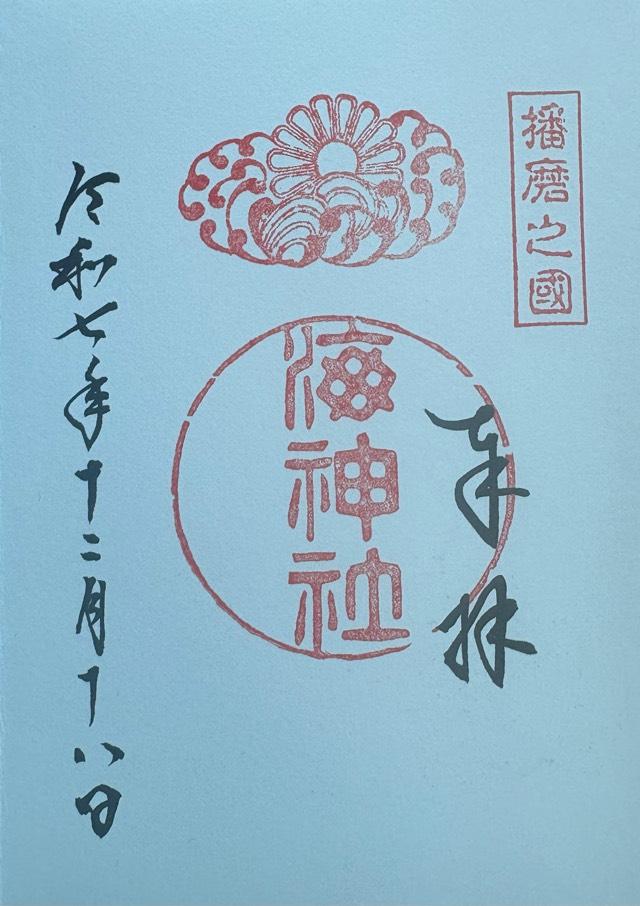 播磨之國
奉拝
海神社
令和七年十二月十八日